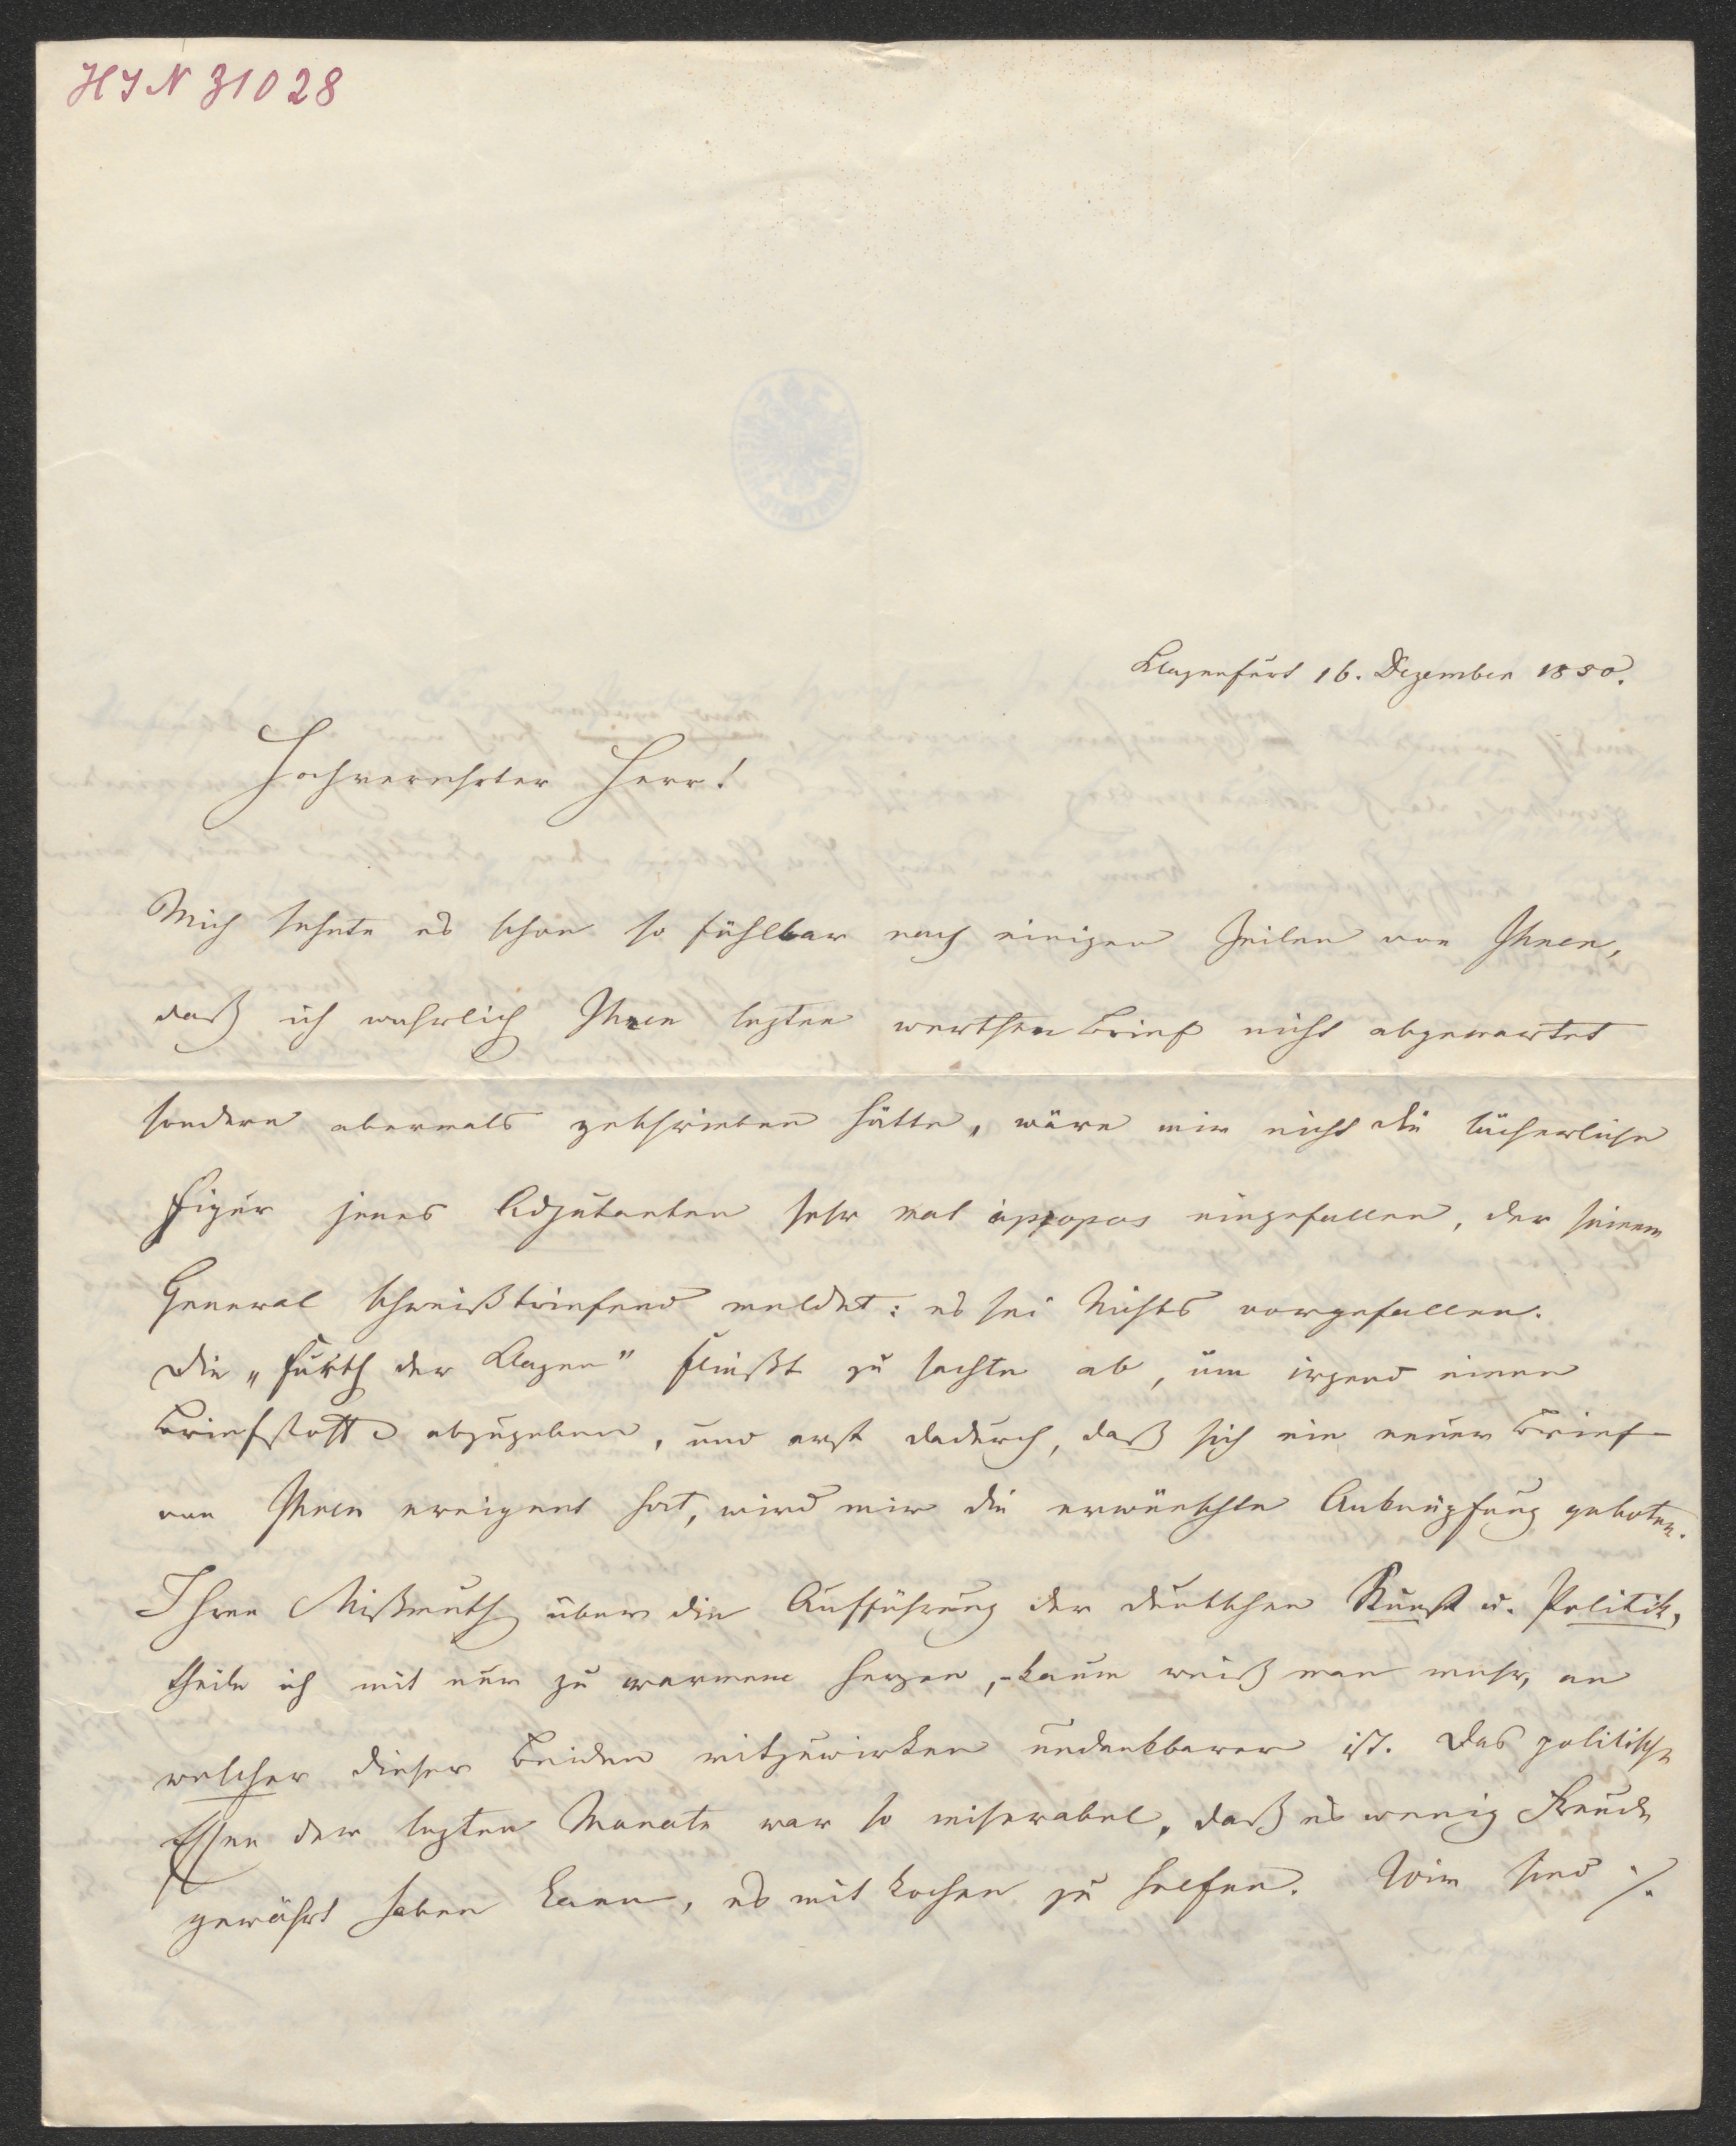 HIN 31028
Klagenfurt 16. Dezember 1850.
Hochverehrter Herr!
Mich sehnte es schon so fühlbar nach einigen Zeilen von Ihnen,
daß ich wahrlich Ihren lezten werthen Brief nicht abgewartet
sondern abermals geschrieben hätte, wäre mir nicht die lächerliche
Figur jenes Adjutanten sehr mal apropos eingefallen, der seinem
General schweißtriefend meldet: es sei Nichts vorgefallen.
Die „Furth der Klagen" fließt zu sachte ab, um irgend einen
Briefstoff abzugeben, und erst dadurch, daß sich ein neuer Brief
von Ihnen ereignet hat, wird mir die erwünschte Anknüpfung geboten.
Ihren Mißmuth über die Aufführung der deutschen Kunst u. Politik,
theile ich mit nur zu warmem Herzen, - kaum weiß man mehr, an
welcher dieser Beiden mitzuwirken undankbarer ist. Das politische
Essen der lezten Monate war so miserabel, daß es wenig Freude
gewährt haben kann, es mit kochen zu helfen. Wir sind ./.